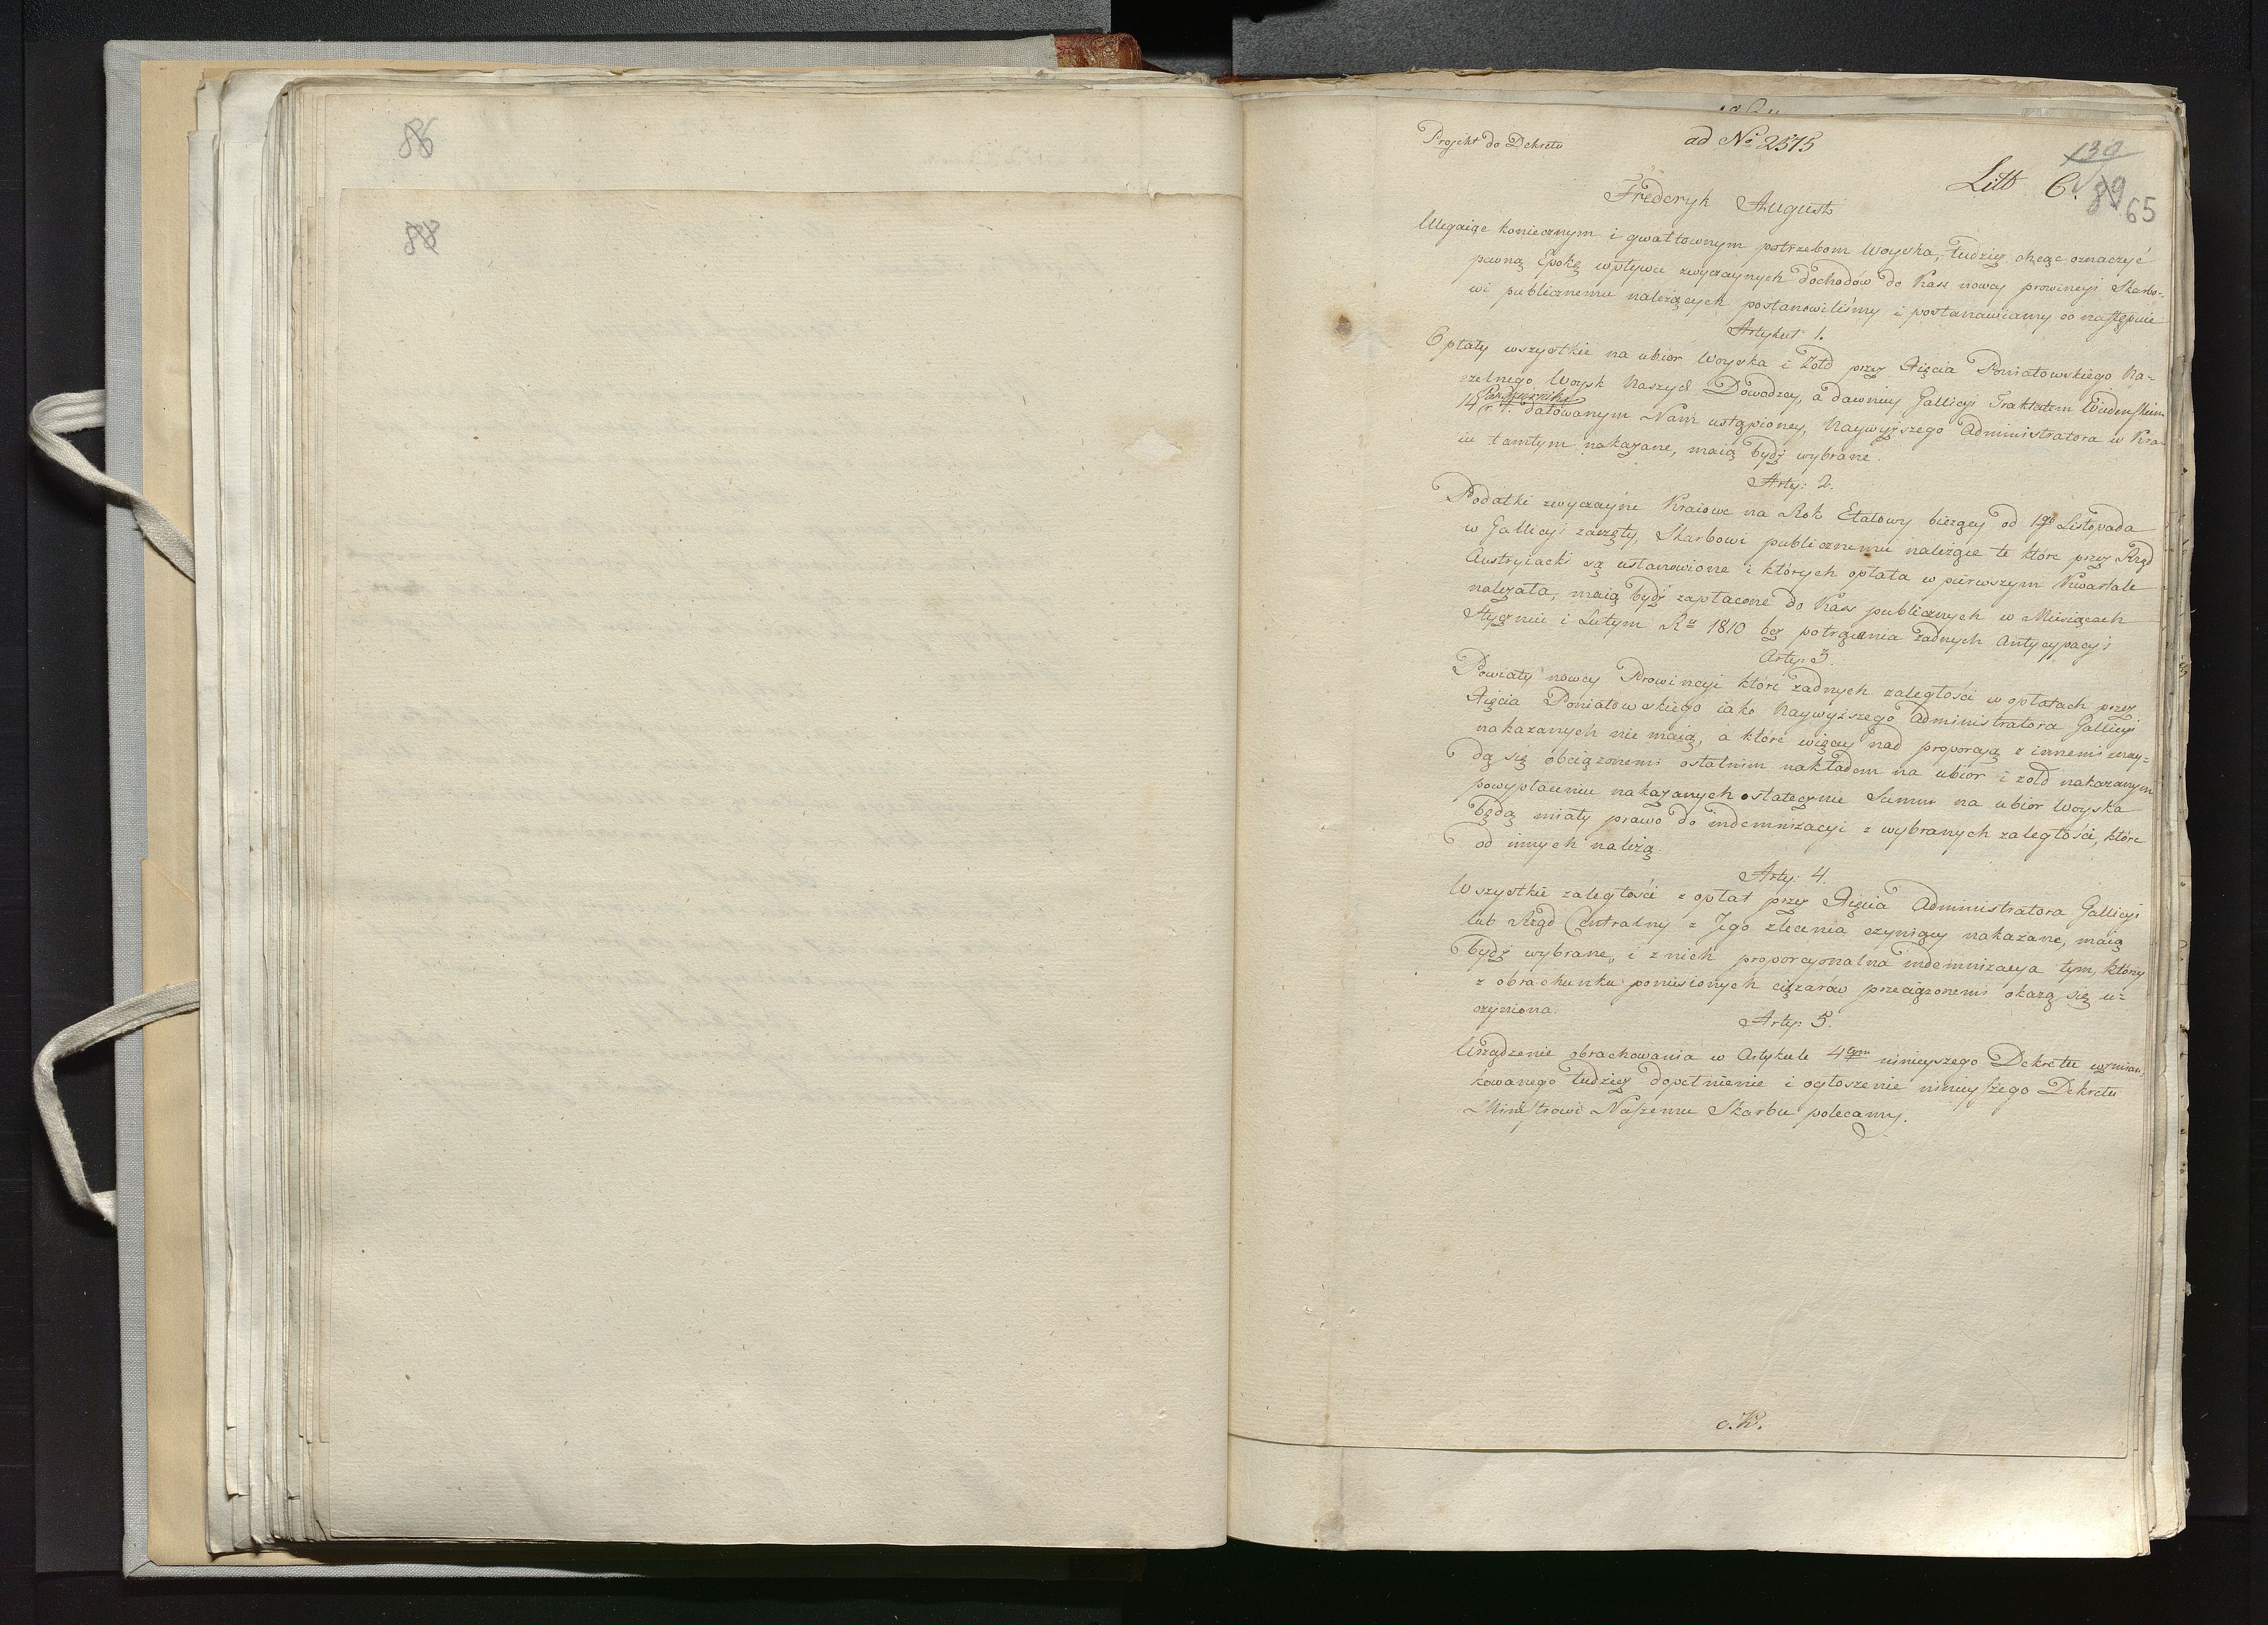 86
88
Projekt do Dekretu
ad No 2575
130
Litt C.
89
65
Frederyk August
Ulegaiąc koniecznym i gwałtownym potrzebom Woyska, tudzież chcąc oznaczyć
pewną Epokę wpływu zwyczaynych dochodów do Kass nowey prowincyi Skarbo-
wi publicznemu należących postanowiliśmy i postanawiamy co następuie
Artykuł 1.
Opłaty wszystkie na ubior Woyska i Żołd przez Xięcia Poniatowskiego Na-
czelnego Woysk Naszych Dowodzcy, a dawniey Gallicyi Traktatem Wiedenskim
Października
14 r. t. datowanym Nam ustąpioney, Naywyższego Administratora w Kra-
iu tamtym nakazane, maią bydź wybrane.
Arty: 2.
Podatki zwyczayne Kraiowe na Rok Etatowy bieżący od 1go Listopada
w Gallicyi zaczęty, Skarbowi publicznemu należące te które przez Rząd
Austryiacki są ustanowione i których opłata w pierwszym Kwartale
należała, maią bydź zapłacone do Kass publicznych w Miesiącach
Styczniu i Lutym Ru 1810 bez potrącenia żadnych Antycypacyi
Arty: 3.
Powiaty nowey Prowincyi które żadnych zaległości w opłatach przez
Xięcia Poniatowskiego iako Naywyższego Administratora Gallicyi
nakazanych nie maią, a które więcey nad proporcyą z innemi znay-
dą się obciążonemi ostatnim nakładem na ubior i żołd nakazanym
powypłaceniu nakazanych ostatecznie Summ na ubior Woyska
będą miały prawo do indemnizacyi z wybranych zaległości, które
od innych należą.
Arty: 4.
Wszystkie zaległości z opłat przez Xięcia Administratora Gallicyi
lub Rząd Centralny z Jego zlecenia czyniący nakazane, maią
bydź wybrane, i z nich proporcyonalna indemnizacya tym, który
z obrachunku poniesionych ciężarów przeciążonemi okażą się u-
czyniona.
Arty: 5.
Urządzenie obrachowania w Artykule 4tym ninieyszego Dekretu wzmian-
kowanego tudzież dopełnienie i ogłoszenie ninieyszego Dekretu
Ministrowi Naszemu Skarbu polecamy.